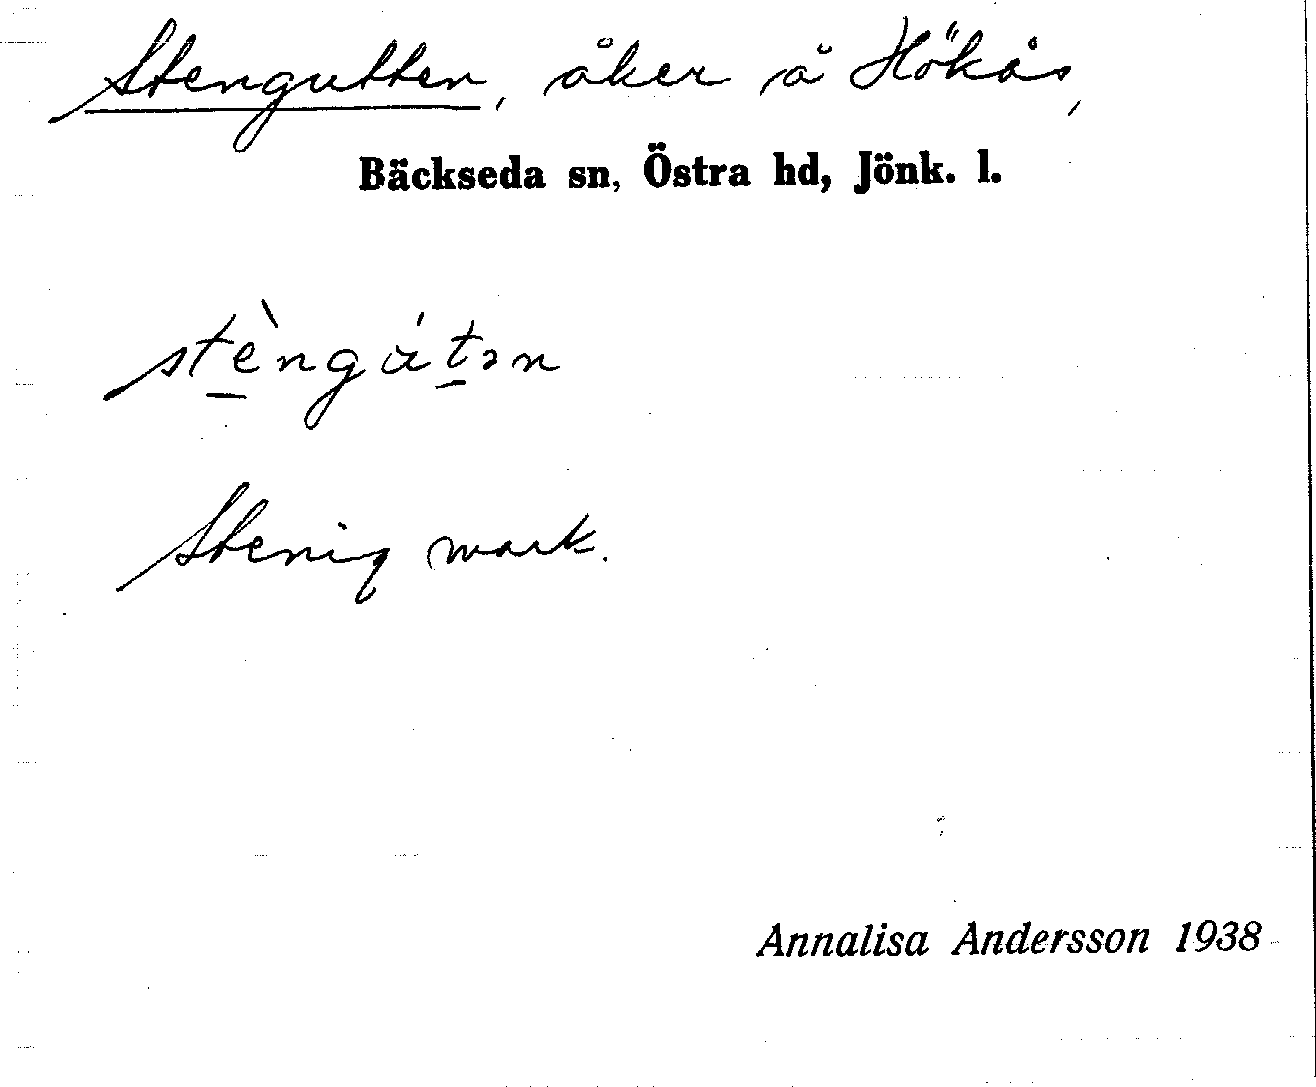 Stengutten, åker å Hökås,
Bäckseda sn, Östra hd, Jönk. l.
stèngút̲ən
Stenig mark.
Annalisa Andersson 1938